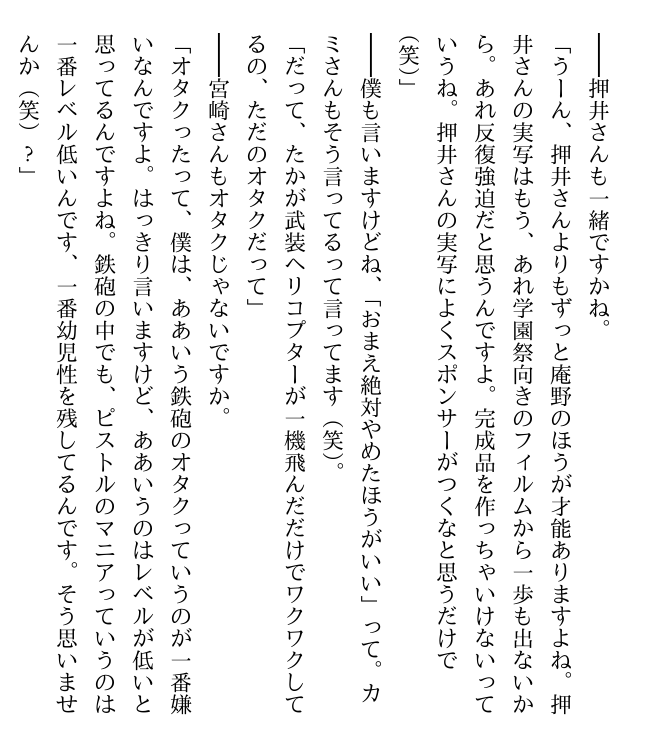 ――押井さんも一緒ですかね。
「うーん、押井さんよりもずっと庵野のほうが才能ありますよね。押
井さんの実写はもう、あれ学園祭向きのフィルムから一歩も出ないか
ら。あれ反復強迫だと思うんですよ。完成品を作っちゃいけないって
いうね。押井さんの実写によくスポンサーがつくなと思うだけで
（笑）」
――僕も言いますけどね、「おまえ絶対やめたほうがいい」って。カ
ミさんもそう言ってるって言ってます（笑）。
「だって、たかが武装ヘリコプターが一機飛んだだけでワクワクして
るの、ただのオタクだって」
――宮崎さんもオタクじゃないですか。
「オタクったって、僕は、ああいう鉄砲のオタクっていうのが一番嫌
いなんですよ。はっきり言いますけど、ああいうのはレベルが低いと
思ってるんですよね。鉄砲の中でも、ピストルのマニアっていうのは
一番レベル低いんです、一番幼児性を残してるんです。そう思いませ
んか（笑）？」